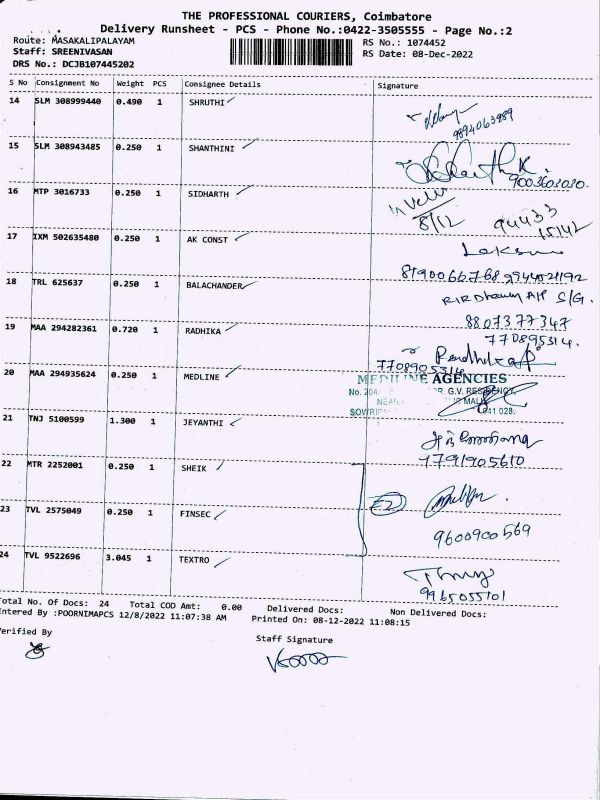 THE PROFESSIONAL COURIERS, Coimbatore
Delivery Runsheet - PCS - Phone No.:0422-3505555 - Page No.:2
Route: MASAKALIPALAYAM
RS No.: 1074452
Staff: SREENIVASAN
RS Date: 08-Dec-2022
DRS No.: DCJB107445202
S No Consignment No Weight PCS Consignee Details Signature
14 SLM 308999440 0.490 1 SHRUTHI
9894063989
15 SLM 308943485 0.250 1 SHANTHINI
9003603030.
16 MTP 3016733 0.250 1 SIDHARTH
8/12
94433
15142
17 IXM 502635480 0.250 1 AK CONST
8190066768, 9944021192
18 TRL 625637 0.250 1 BALACHANDER
S/G.
8807377347
19 MAA 294282361 0.720 1 RADHIKA
770895314.
7708905314
20 MAA 294935624 0.250 1 MEDLINE
MEDILINE AGENCIES
No. 204, G.V. RESIDENCY,
641 028.
21 TNJ 5100599 1.300 1 JEYANTHI
7791905610
22 MTR 2252001 0.250 1 SHEIK
23 TVL 2575049 0.250 1 FINSEC
9600900569
24 TVL 9522696 3.045 1 TEXTRO
9965055101
Total No. Of Docs: 24 Total COD Amt: 0.00 Delivered Docs: Non Delivered Docs:
Entered By :POORNIMAPCS 12/8/2022 11:07:38 AM Printed On: 08-12-2022 11:08:15
Verified By
Staff Signature